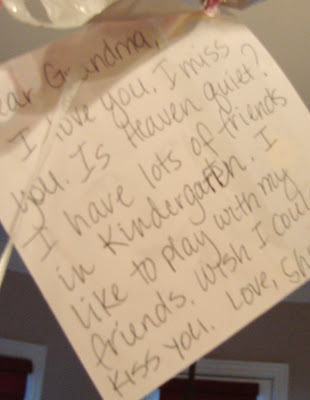 ear Grandma,
I love you. I miss
you. Is Heaven quiet?
I have lots of friends
in Kindergarten. I
like to play with my
friends. Wish I coul
kiss you. Love, Sh